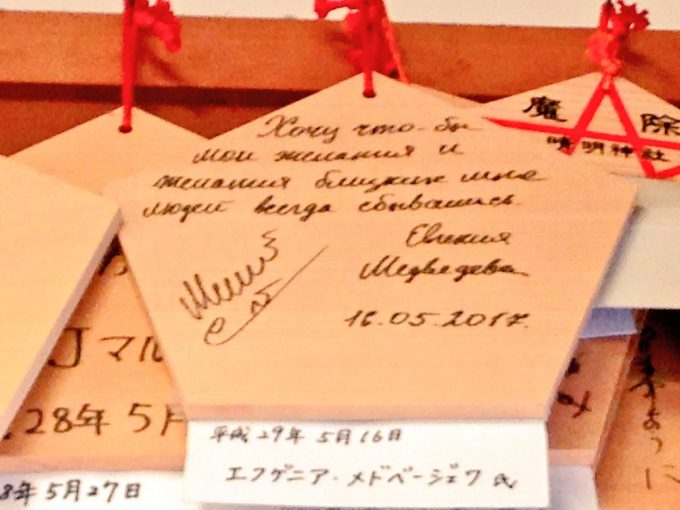 Хочу что-бы
мои желания и
желания близких мне
людей всегда сбывались.
Евгения
Медведева
16.05.2017.
平成29年 5月16日
エフゲニア・メドベージェワ 氏
魔 除
晴明神社
Jマル
28年5月
8年5月27日
ように